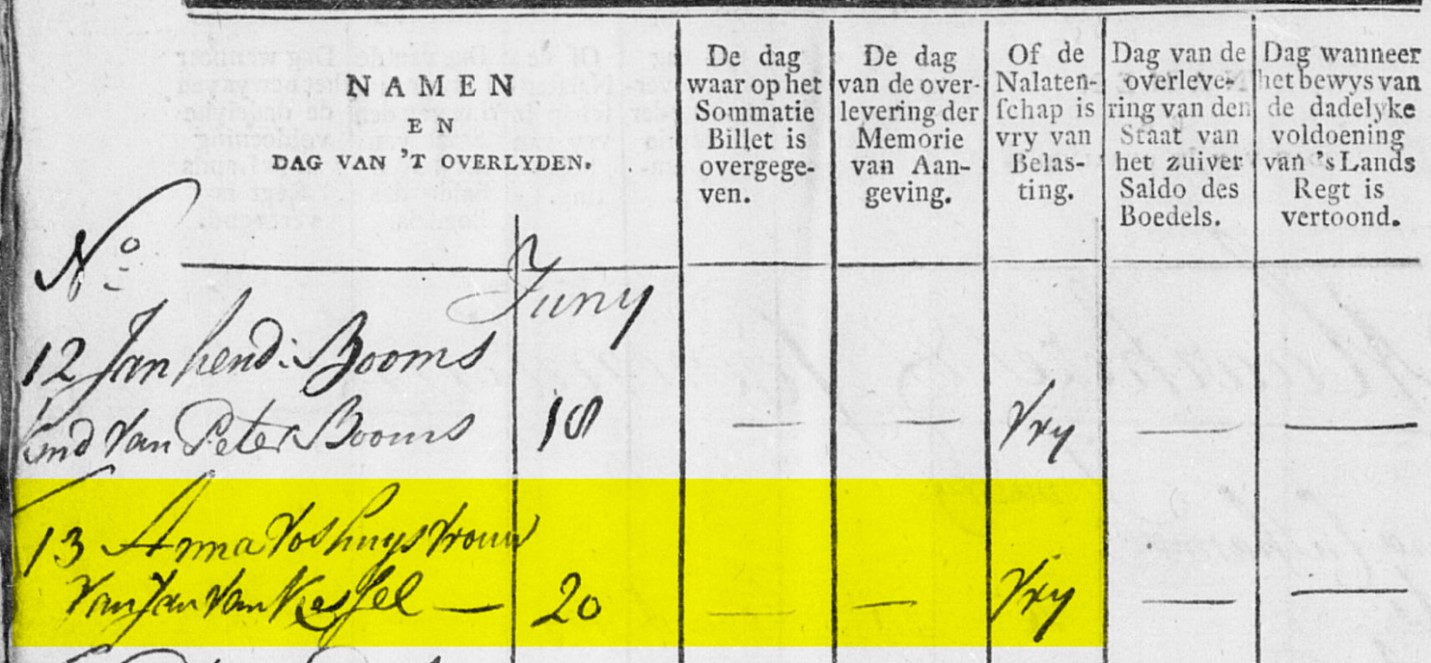 NAMEN
EN
DAG VAN 'T OVERLYDEN.
De dag
waar op het
Sommatie
Billet is
overgege-
ven.
De dag
van de over-
levering der
Memorie
van Aan-
geving.
Of de
Nalaten-
schap is
vry van
Belas-
ting.
Dag van de
overleve-
ring van den
Staat van
het zuiver
Saldo des
Boedels.
Dag wanneer
het bewys van
de dadelyke
voldoening
van 's Lands
Regt is
vertoond.
No
Juny
12 Jan hend: Booms
kind van Peter Booms 18 — — vry — —
13 Anna Vos huysvrouw
van Jan van Kessel — 20 — — vry — —